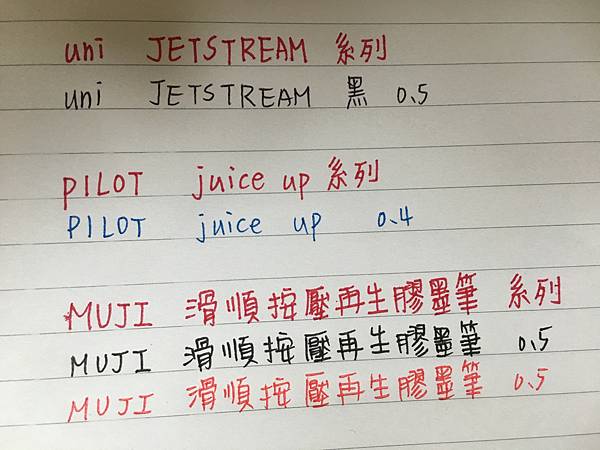 uni JETSTREAM 系列
uni JETSTREAM 黑 0.5
PILOT juice up 系列
PILOT juice up 0.4
MUJI 滑順按壓再生膠墨筆 系列
MUJI 滑順按壓再生膠墨筆 0.5
MUJI 滑順按壓再生膠墨筆 0.5